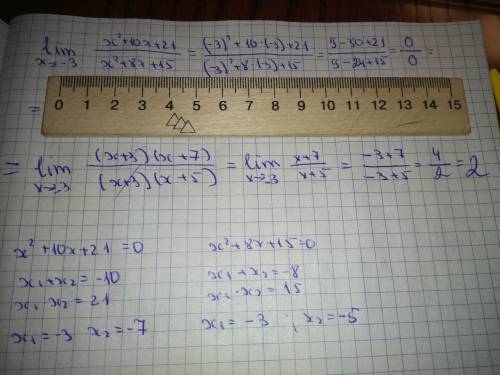 lim x→-3 (x²+10x+21)/(x²+8x+15) = ((-3)²+10·(-3)+21)/((-3)²+8·(-3)+15) = (9-30+21)/(9-24+15) = 0/0 =
=
0 1 2 3 4 5 6 7 8 9 10 11 12 13 14 15
= lim x→-3 ((x+3)(x+7))/((x+3)(x+5)) = lim x→-3 (x+7)/(x+5) = (-3+7)/(-3+5) = 4/2 = 2
x²+10x+21=0
x₁+x₂=-10
x₁·x₂=21
x₁=-3 x₂=-7
x²+8x+15=0
x₁+x₂=-8
x₁·x₂=15
x₁=-3 ; x₂=-5